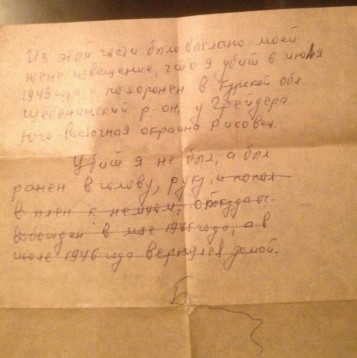 Из этой части было выслано моей
жене извещение, что я убит 6 июня
1943 года и похоронен в Курской обл
р-он, у Грейдера
Юго-Восточная окраина
Убит я не был, а был
ранен в голову, руку, и попал
в плен к немцам, откуда
в мае 1945 года, а в
июне 1946 года вернулся домой.